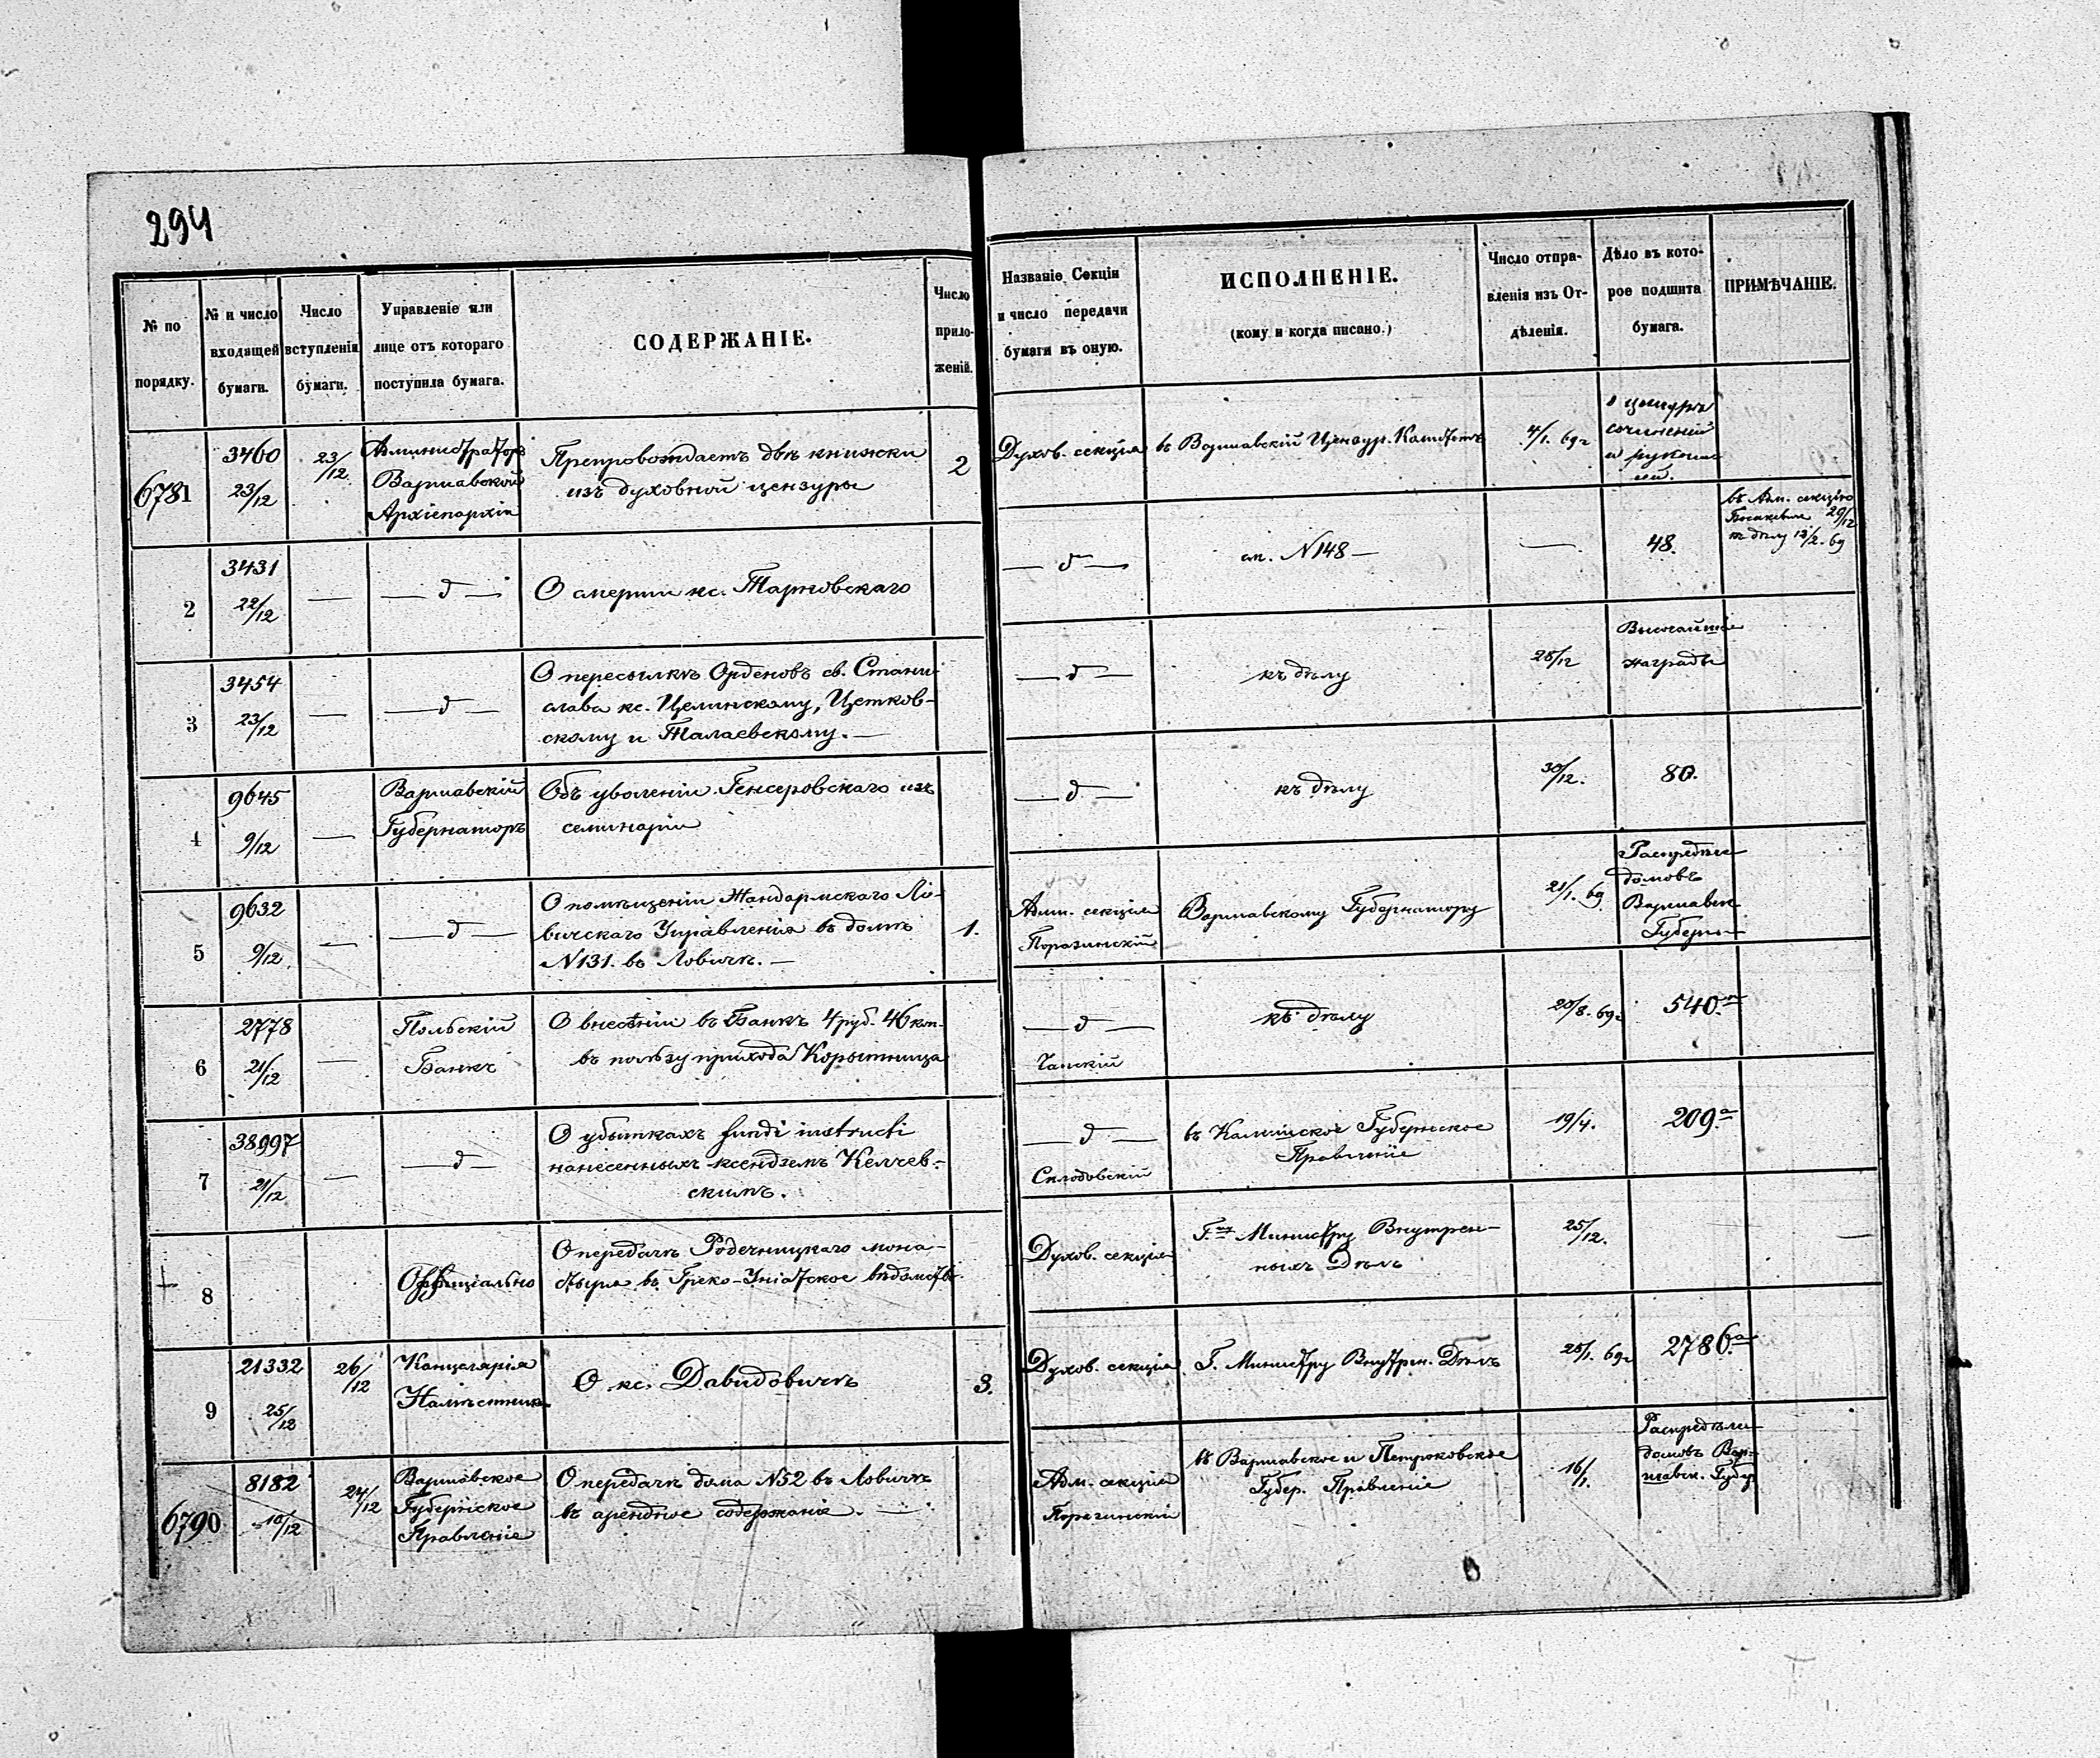 294
№ по
порядку.
№ и число
входящей
бумаги.
Число
вступленія
бумаги.
Управленіе или
лице отъ котораго
поступила бумага.
СОДЕРЖАНІЕ.
Число
прило-
женій.
Названіе Секціи
и число передачи
бумаги въ оную.
ИСПОЛНЕНІЕ.
(кому и когда писано.)
Число отпра-
вленія изъ От-
дѣленія.
Дѣло въ кото-
рое подшита
бумага.
ПРИМѢЧАНІЕ.
6781
3460
23/12
23/12
Администраторъ
Варшавской
Архіепархіи
Препровождаетъ двѣ книжки
изъ духовной цензуры
2
Духов. секція
въ Варшавскій Цензур. Комитетъ
4/1. 69 г
о цензурѣ
сочиненій
и
2
3431
22/12
—
— д —
О смерти кс. Тарновскаго
— д —
см. N 148 —
—
48.
въ Адм. секцію
29/12
къ дѣлу 13/2. 69
3
3454
23/12
—
— д —
О пересылкѣ Орденовъ св. Стани-
слава кс. Целинскому, Цетков-
скому и Талаевскому. —
— д —
къ дѣлу
28/12
Высочайшіе
награды
4
9645
9/12
—
Варшавскій
Губернаторъ
Объ уволеніи Генсеровскаго изъ
семинаріи
— д —
къ дѣлу
30/12.
80.
5
9632
9/12.
—
— д —
О помѣщеніи Жандармскаго Ло-
вичскаго Управленія въ домѣ
N 131. въ Ловичѣ. —
1.
Адм. секція
Поразинскій
Варшавскому Губернатору
21/1. 69
домовъ
Варшавск
Губерн
6
2778
21/12
—
Польскій
Банкъ
О внесеніи въ Банкъ 4 руб. 46 коп.
въ пользу прихода Корытница
— д —
Чапскій
къ дѣлу
20/8. 69 г
540.
7
38997
21/12
—
— д —
О убыткахъ fundi instructi
нанесенныхъ ксендземъ Келчев-
скимъ.
— д —
Склодовскій
въ Калишское Губернское
Правленіе
19/4.
209.а
8
Оффиціально
О передачѣ Радечницкаго мона-
стыря въ Греко-Уніатское вѣдомство.
Духов. секція
Г.ну Министру Внутрен-
нихъ Дѣлъ
25/12.
9
21332
25/12
26/12
Канцелярія
Намѣстника
О кс. Давидовичѣ
3.
Духов. секція
Г. Министру Внутрен. Дѣлъ
25/1. 69 г
2786.а
6790
8182
10/12
24/12
Варшавское
Губернское
Правленіе
О передачѣ дома N 52 въ Ловичѣ
въ арендное содержаніе. —
Адм. секція
Поразинскій
въ Варшавское и Петроковское
Губер. Правленіе
16/1.
домовъ Вар-
шавск. Губер